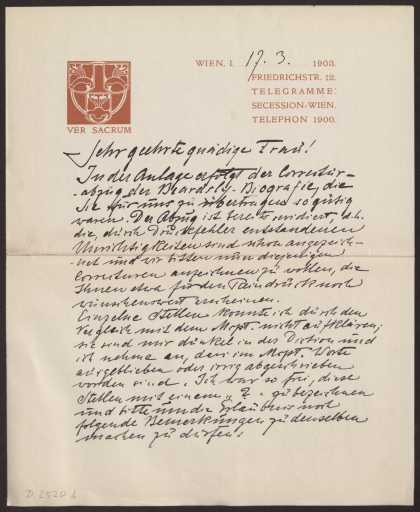 WIEN, I. 17. 3. 1903.
FRIEDRICHSTR. 12.
TELEGRAMME:
SECESSION-WIEN.
TELEPHON 1900.
VER SACRUM
Sehr geehrte gnädige Frau!
In der Anlage erfolgt der Correctur-
abzug der Beardsley-Biografie, die
Sie für uns zu übertragen so gütig
waren. Der Abzug ist bereits revidiert, d.h.
die, durch Druckfehler entstandenen
Unrichtigkeiten sind schon angezeich-
net und wir bitten nun diejenigen
Correcturen anzeichnen zu wollen, die
Ihnen etwa für den Reindruck noch
wünschenswert erscheinen.
Einzelne Stellen konnte ich durch den
Vergleich mit dem Mspt. nicht aufklären;
sie sind mir dunkel in der Diction und
ich nehme an, dass im Mspt. Worte
ausgeblieben oder irrig abgeschrieben
worden sind. Ich war so frei, diese
Stellen mit einem „?“ zu bezeichnen
und bitte um die Erlaubnis noch
folgende Bemerkungen zu denselben
machen zu dürfen: